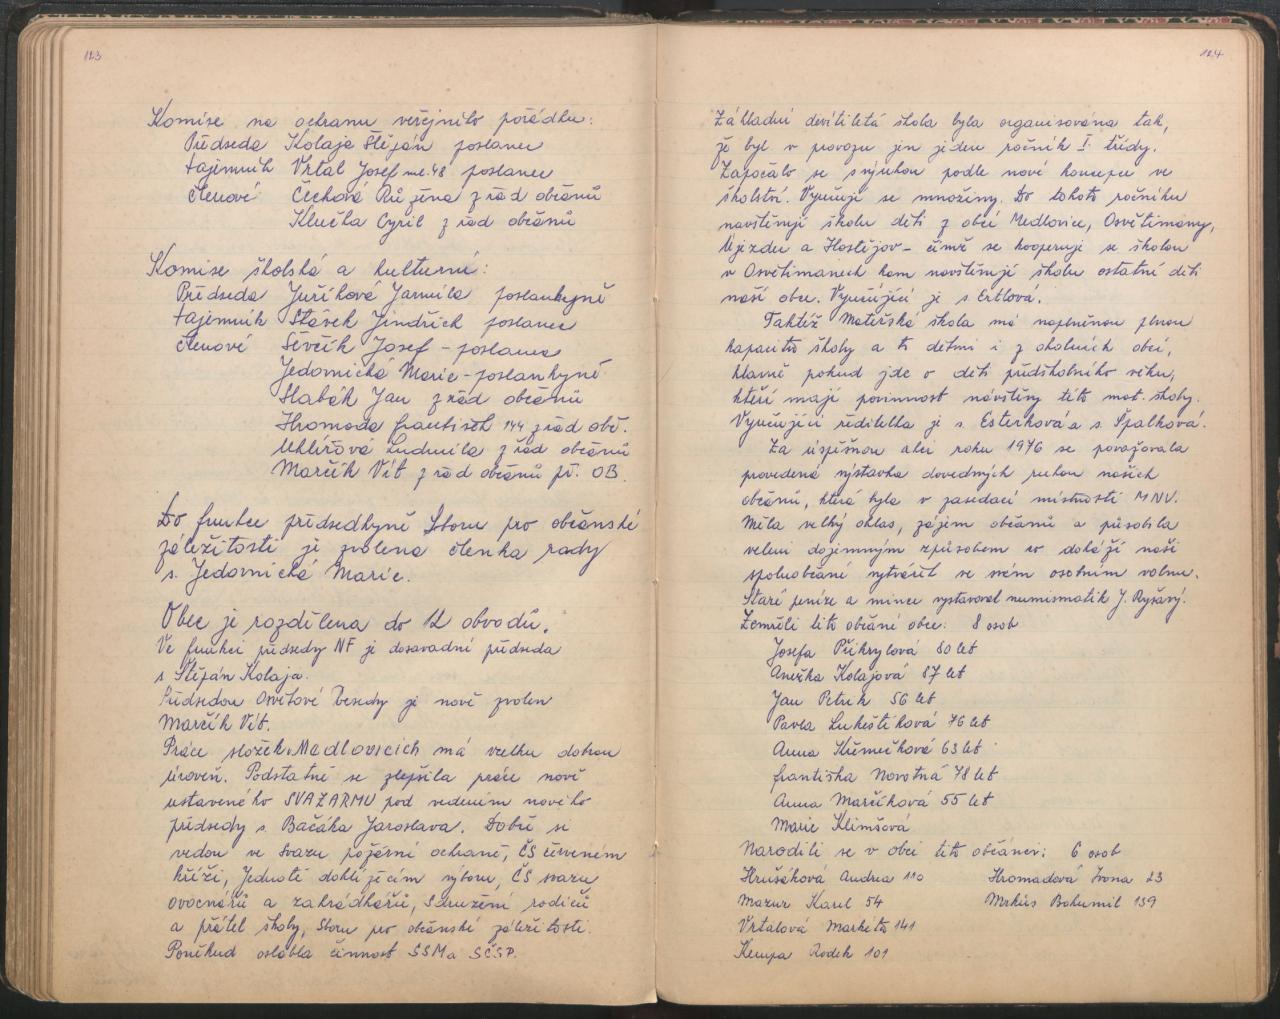 123
Komise na ochranu veřejného pořádku:
Předseda Kolaja Štěpán poslanec
tajemník Vrtal Josef me. 48 poslanec
členové Čechová Růžena z řad občanů
Klučka Cyril z řad občanů
Komise školská a kulturní:
Předseda Juříková Jarmila poslankyně
tajemník Stávek Jindřich poslanec
členové Ševčík Josef - poslanec
Jedovnická Marie - poslankyně
Slabák Jan z řad občanů
Hromada František 144 z řad obč.
Uhlířová Ludmila z řad občanů
Marčík Vít z řad občanů př. OB.
Do funkce předsedkyně Sboru pro občanské
záležitosti je zvolena členka rady
s. Jedovnická Marie.
Obec je rozdělena do 12 obvodů.
Ve funkci předsedy NF je dosavadní předseda
s Štěpán Kolaja.
Předsedou Osvětové besedy je nově zvolen
Marčík Vít.
Práce složek v Medlovicích má vcelku dobrou
úroveň. Podstatně se zlepšila práce nově
ustaveného SVAZARMU pod vedením nového
předsedy s. Bačáka Jaroslava. Dobře si
vedou ve Svazu požární ochraně, ČS červeném
kříži, Jednotě dohlížecím výboru, ČS svazu
ovocnářů a zahrádkářů, Sdružení rodičů
a přátel školy, Sboru pro občanské záležitosti.
Poněkud oslabla činnost SSM a SČSP.
124
Základní devítiletá škola byla organisována tak,
že byl v provozu jen jeden ročník I. třídy.
Započalo se s výukou podle nové koncepce ve
školství. Vyučují se množiny. Do tohoto ročníku
navštěvují školu děti z obcí Medlovice, Osvětimany,
Újezdu a Hostějov - čímž se kooperuje se školou
v Osvětimanech kam navštěvují školu ostatní děti
naší obce. Vyučující je s Ertlová.
Taktéž Mateřská škola má naplněnou plnou
kapacitu školy a to dětmi i z okolních obcí,
hlavně pokud jde o děti předškolního věku,
kteří mají povinnost návštěvy této mat. školy.
Vyučující ředitelka je s. Esterková a s. Špalková.
Za úspěšnou akci roku 1976 se považovala
provedená výstavka dovedných rukou našich
občanů, která byla v zasedací místnosti MNV.
Měla velký ohlas, zájem občanů a působila
velmi dojemným způsobem co dokáží naši
spoluobčané vytvářit ve svém osobním volnu.
Staré peníze a mince vystavoval numismatik J. Ryšavý.
Zemřeli tito občané obce: 8 osob
Josefa Přikrylová 80 let
Anežka Kolajová 87 let
Jan Petruk 56 let
Pavla Lukeštíková 76 let
Anna Křemečková 63 let
Františka Novotná 78 let
Anna Marčíková 55 let
Marie Klimšová
Narodili se v obci tito občánci: 6 osob
Hrušáková Andrea 110 Hromadová Ivona 23
Mazur Karel 54 Mrkús Bohumil 139
Vrtalová Markéta 141
Kempa Radek 101